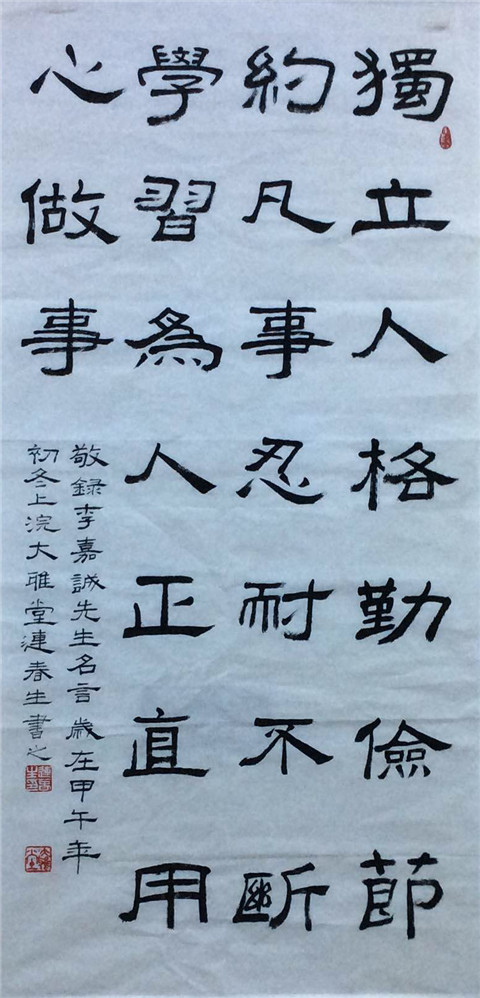 獨立人格勤儉節
約凡事忍耐不斷
學習為人正直用
心做事
敬錄李嘉誠先生名言歲在甲午年
初冬上浣大雅堂連春生書之